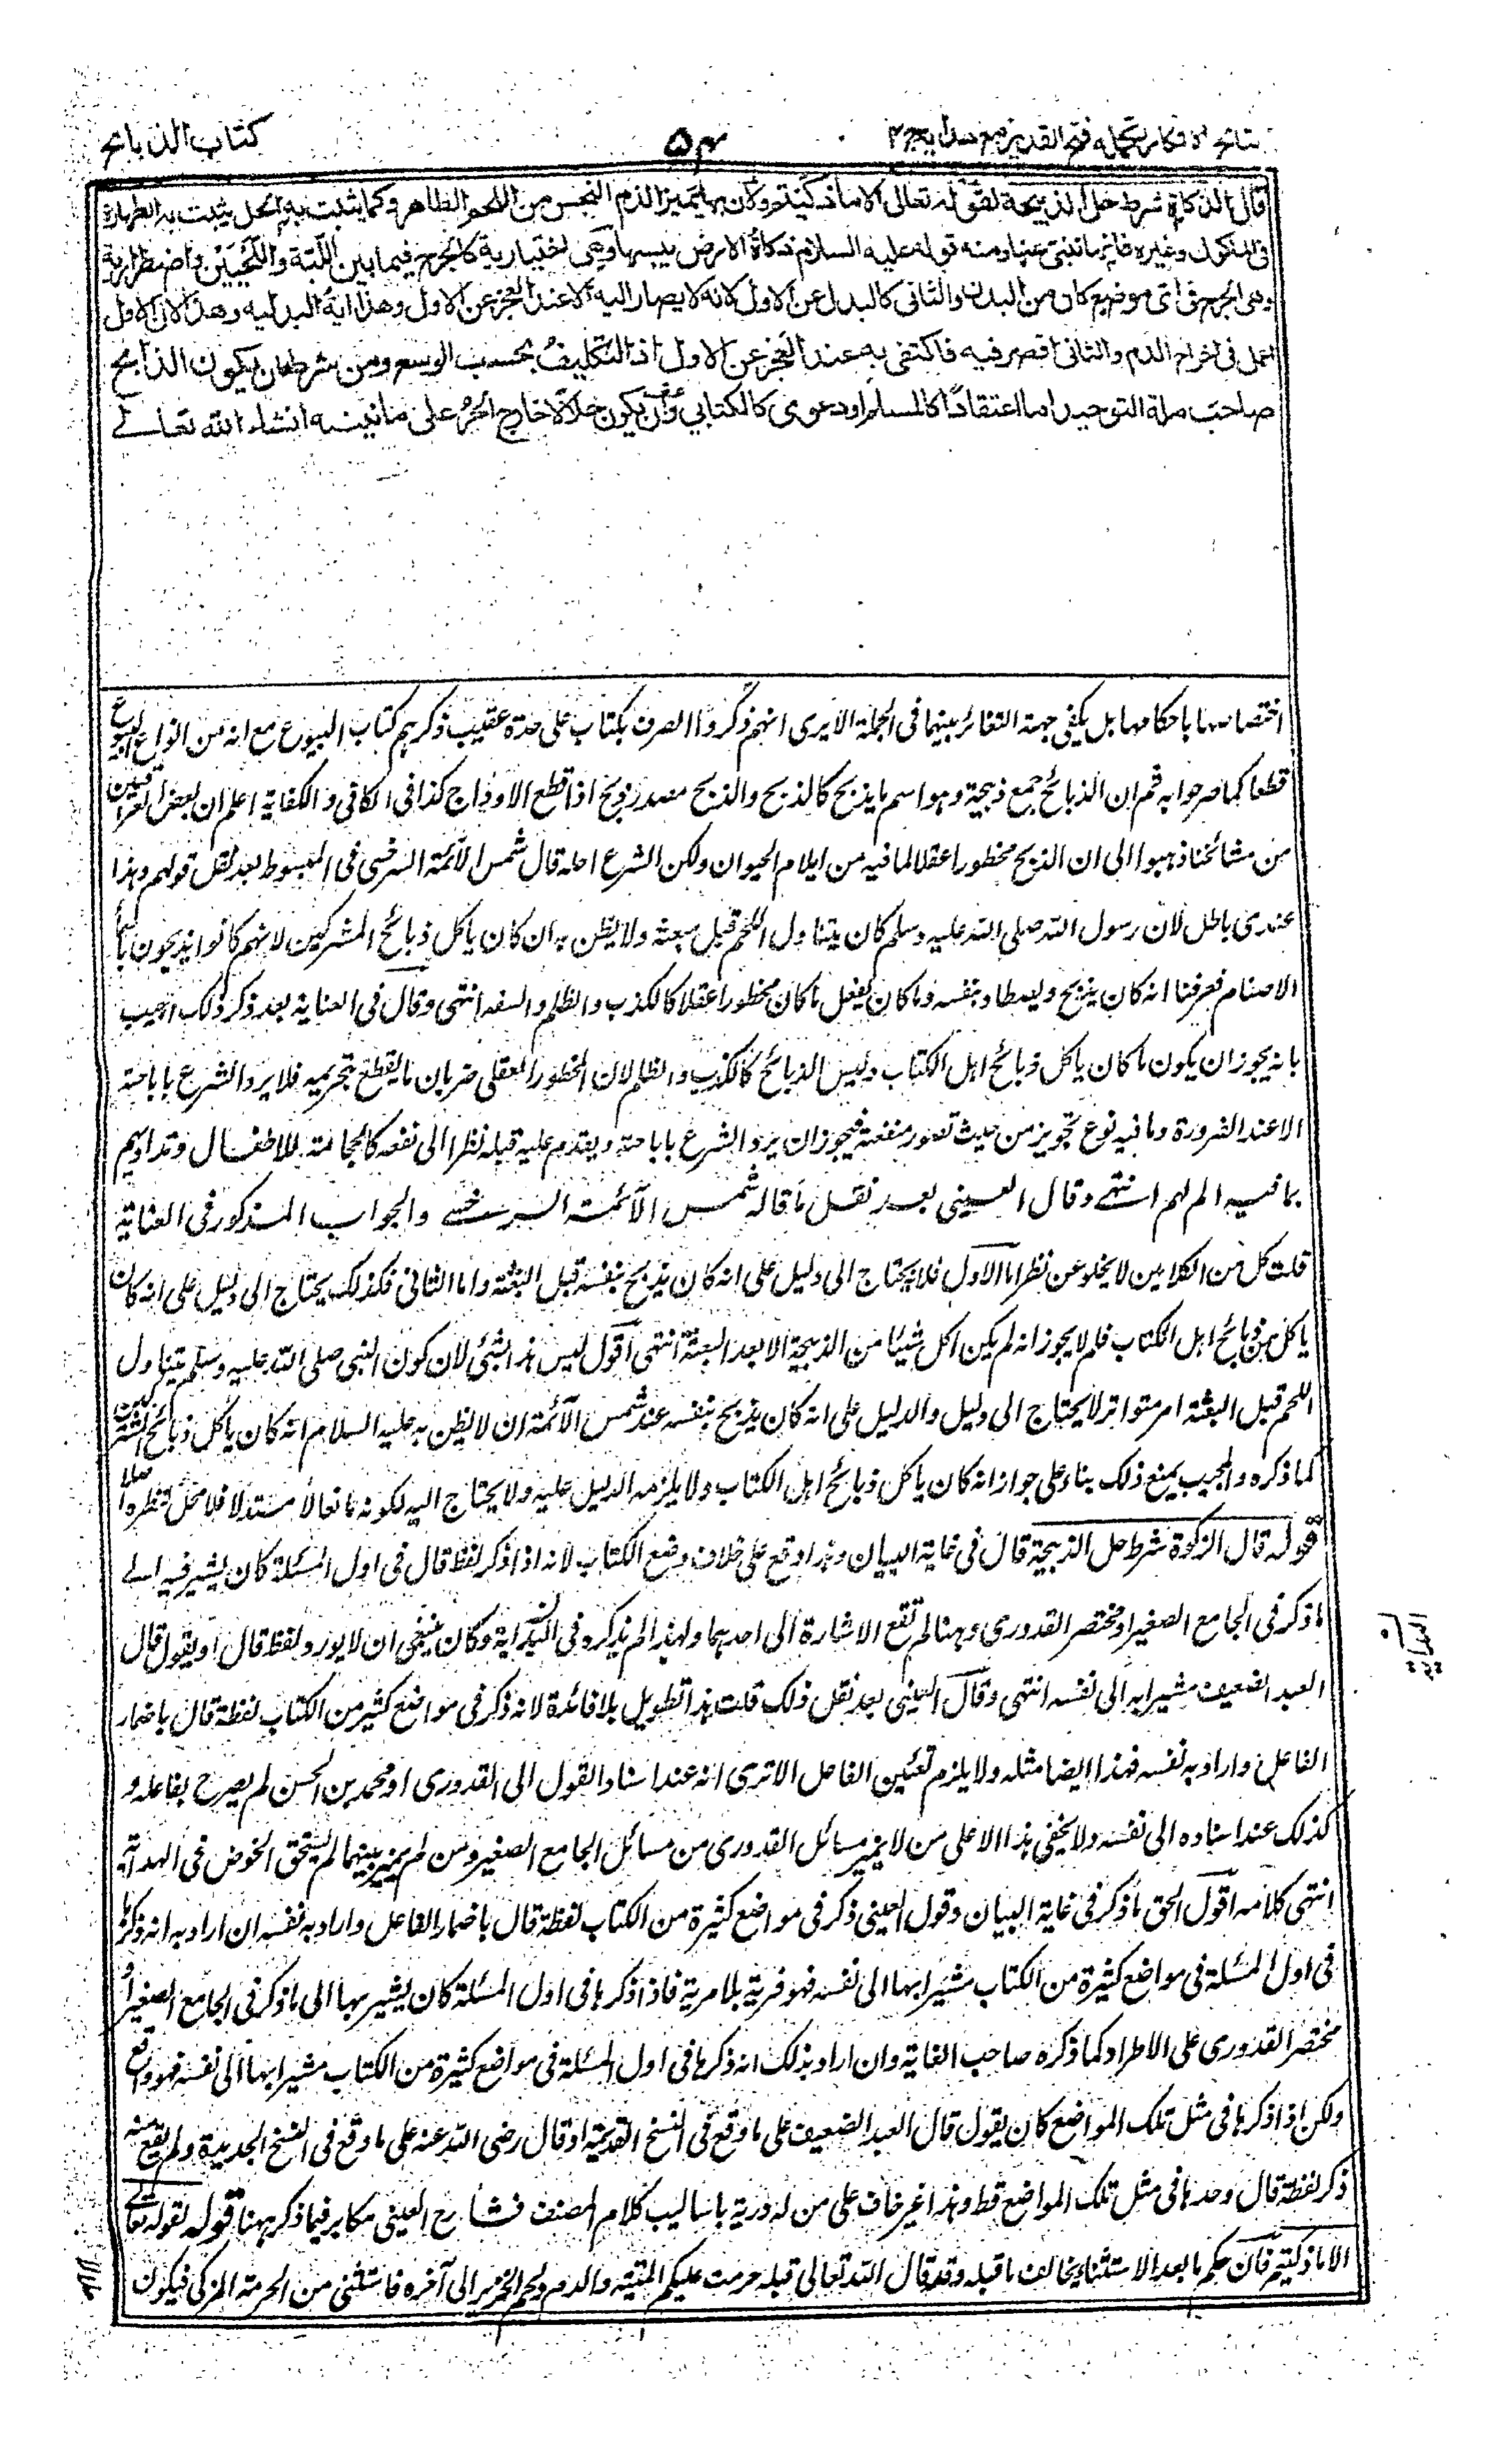 نتائج الافكار تكمله فتح القدير مع هدايه ج٤
٥٣
كتاب الذبائح
قال الذكاة شرط حل الذبيحة لقوله تعالى الا ما ذكيتم ولان بها يتميز الدم النجس من اللحم الطاهر وكما يثبت به الحل يثبت به الطهارة
فى الماكول وغيره فانها تنبئ عنها ومنه قوله عليه السلام ذكاة الارض يبسها وهى اختيارية كالجرح فيما بين اللبة واللحيين واضطرارية
وهى الجرح فى اى موضع كان من البدن والثانى كالبدل عن الاول لانه لا يصار اليه الا عند العجز عن الاول وهذا اية البدلية وهذا لان الاول
اعمل فى اخراج الدم والثانى اقصر فيه فاكتفى به عند العجز عن الاول اذ التكليف بحسب الوسع ومن شرطه ان يكون الذابح
صاحب ملة التوحيد اما اعتقادا كالمسلم او دعوى كالكتابي وان يكون حلالا خارج الحرم على ما نبينه انشاء الله تعالے
اختصاصها باحكامها بل يكفى جهة التغائر بينهما فى الجملة الا يرى انهم ذكروا الصرف بكتاب على حدة عقيب ذكرهم كتاب البيوع مع انه من انواع البيوع
قطعا كما صرحوا به ثم ان الذبائح جمع ذبيحة وهو اسم ما يذبح كالذبح والذبح مصدر ذبح اذا قطع الاوداج كذا فى الكافى والكفاية اعلم ان بعض العراقيين
من مشائخنا ذهبوا الى ان الذبح محظور عقلا لما فيه من ايلام الحيوان ولكن الشرع احله قال شمس الائمة السرخسى فى المبسوط بعد نقل قولهم وهذا
عندى باطل لان رسول الله صلى الله عليه وسلم كان يتناول اللحم قبل مبعثه ولا يظن به ان كان ياكل ذبائح المشركين لانهم كانوا يذبحون باسم
الاصنام فعرفنا انه كان يذبح ويصطاد بنفسه وما كان يفعل ما كان محظورا عقلا كالكذب والظلم والسفه انتهى وقال فى العناية بعد ذكر ذلك اجيب
بانه يجوز ان يكون ما كان ياكل ذبائح اهل الكتاب وليس الذبائح كالكذب والظلم لان المحظور العقلى ضربان ما يقطع بتحريمه فلا يرد الشرع باباحته
الا عند الضرورة وما فيه نوع تجويز من حيث تصور منفعة فيجوز ان يرد الشرع باباحته ويقدم عليه قبله نظرا الى نفعه كالحجامة للاطفال وتداويهم
بما فيه الم لهم انتهے وقال العينى بعد نقل ما قاله شمس الائمة السرخسے والجواب المذكور فى العناية
قلت كل من الكلامين لا يخلو عن نظر اما الاول فلانه يحتاج الى دليل على انه كان يذبح بنفسه قبل البعثة واما الثانى فكذلك يحتاج الى دليل على انه كان
ياكل من ذبائح اهل الكتاب فلم لا يجوز انه لم يكن اكل شيئا من الذبيحة الا بعد البعثة انتهى اقول ليس هذا بشئ لان كون النبى صلى الله عليه وسلم يتناول
اللحم قبل البعثة امر متواتر لا يحتاج الى دليل والدليل على انه كان يذبح بنفسه عند شمس الائمة ان لا يظن به عليه السلام انه كان ياكل ذبائح المشركين
كما ذكره والمجيب يمنع ذلك بناء على جواز انه كان ياكل ذبائح اهل الكتاب ولا يلزمه الدليل عليه ولا يحتاج اليه لكونه مانعا لا مستدلا فلا محل لنظره اصلا
قوله قال الزكوة شرط حل الذبيحة قال فى غاية البيان وهذا وقع على خلاف وضع الكتاب لانه اذا ذكر لفظ قال فى اول المسئلة كان يشير فيه الے
ما ذكر فى الجامع الصغير او مختصر القدورى وههنا لم تقع الاشارة الى احدهما ولهذا لم يذكره فى البداية وكان ينبغى ان لا يورد لفظ قال او يقول قال
العبد الضعيف مشيرا به الى نفسه انتهى وقال العينى بعد نقل ذلك قلت هذا تطويل بلا فائدة لانه ذكر فى مواضع كثير من الكتاب لفظة قال باضمار
الفاعل واراد به نفسه فهذا ايضا مثله ولا يلزم تعيين الفاعل الا ترى انه عند اسناد القول الى القدورى او محمد بن الحسن لم يصرح بفاعله و
كذلك عند اسناده الى نفسه ولا يخفى هذا الا على من لا يميز مسائل القدورى من مسائل الجامع الصغير ومن لم يميز بينهما لم يستحق الخوض فى الهداية
انتهى كلامه اقول الحق ما ذكر فى غاية البيان وقول العينى ذكر فى مواضع كثيرة من الكتاب لفظة قال باضمار الفاعل واراد به نفسه ان اراد به انه ذكرها
فى اول المسئلة فى مواضع كثيرة من الكتاب مشيرا بها الى نفسه فهو فرية بلا مرية فاذا ذكرها فى اول المسئلة كان يشير بها الى ما ذكر فى الجامع الصغير او
مختصر القدورى على الاطراد كما ذكره صاحب الغاية وان اراد بذلك انه ذكرها فى اول المسئلة فى مواضع كثيرة من الكتاب مشيرا بها الى نفسه فهو واقع
ولكن اذا ذكرها فى مثل تلك المواضع كان يقول قال العبد الضعيف على ما وقع فى النسخ القديمة او قال رضى الله عنه على ما وقع فى النسخ الجديدة ولم يقع منه
ذكر لفظة قال وحدها فى مثل تلك المواضع قط وهذا غير خاف على من له درية باساليب كلام المصنف فشارح العينى مكابر فيما ذكر ههنا قوله لقوله تعالے
الا ما ذكيتم فان حكم ما بعد الاستثناء يخالف ما قبله وقد قال الله تعالى قبله حرمت عليكم الميتة والدم ولحم الخنزير الى آخره فاستثنى من الحرمة المزكى فيكون